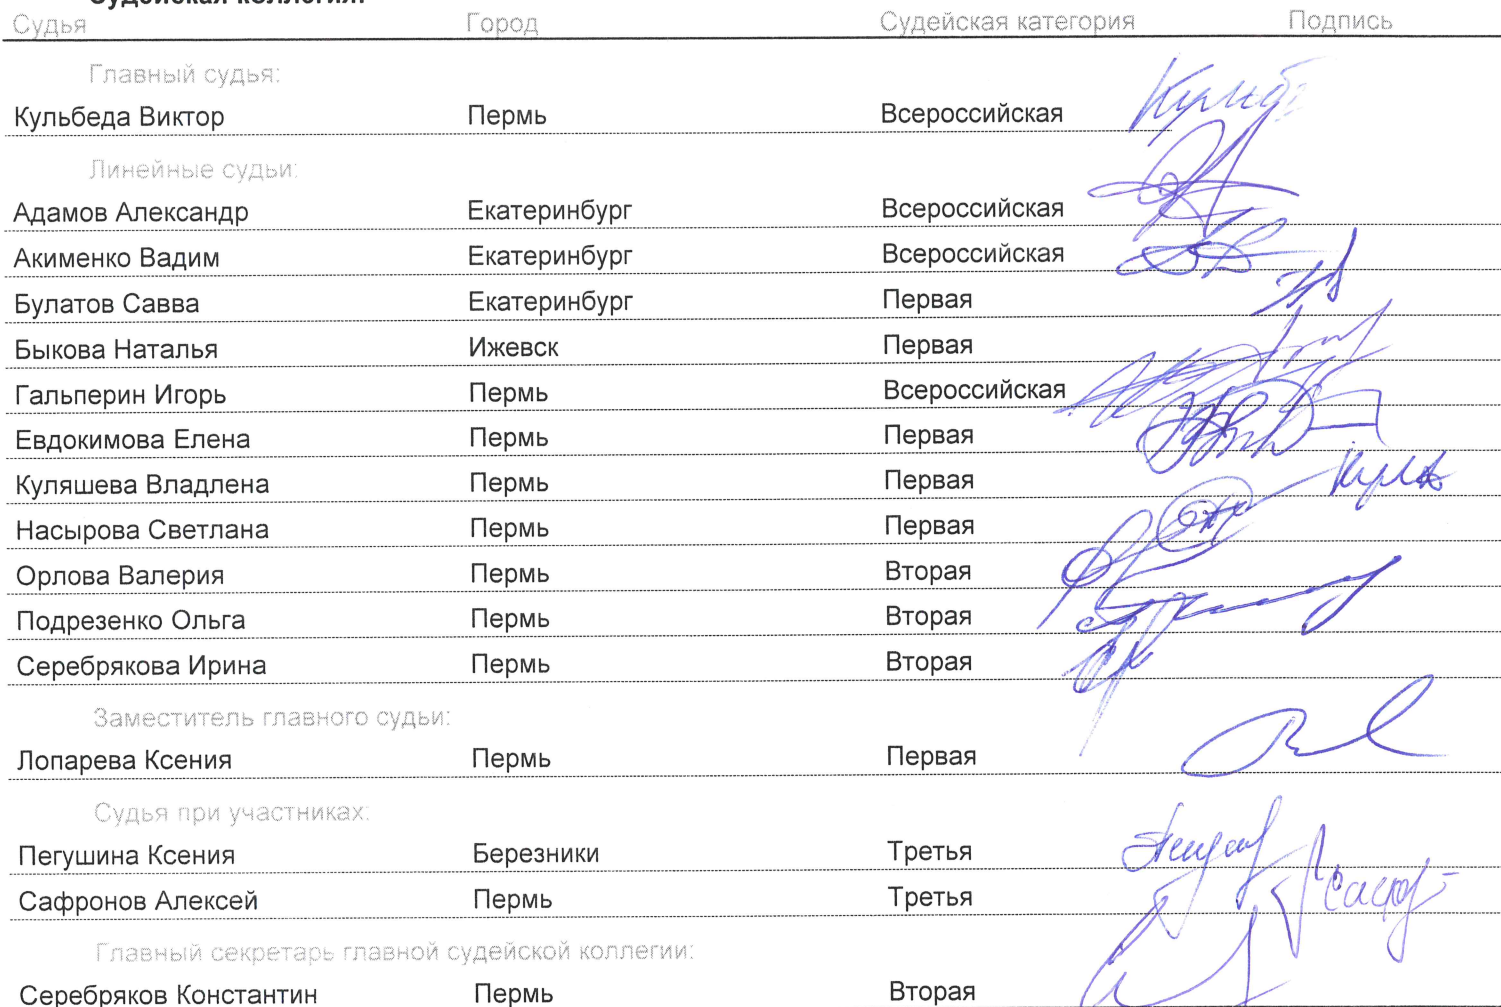 Судейская коллегия:
Судья Город Судейская категория Подпись
Главный судья:
Кульбеда Виктор Пермь Всероссийская
Линейные судьи:
Адамов Александр Екатеринбург Всероссийская
Акименко Вадим Екатеринбург Всероссийская
Булатов Савва Екатеринбург Первая
Быкова Наталья Ижевск Первая
Гальперин Игорь Пермь Всероссийская
Евдокимова Елена Пермь Первая
Куляшева Владлена Пермь Первая
Насырова Светлана Пермь Первая
Орлова Валерия Пермь Вторая
Подрезенко Ольга Пермь Вторая
Серебрякова Ирина Пермь Вторая
Заместитель главного судьи:
Лопарева Ксения Пермь Первая
Судья при участниках:
Пегушина Ксения Березники Третья
Сафронов Алексей Пермь Третья
Главный секретарь главной судейской коллегии:
Серебряков Константин Пермь Вторая